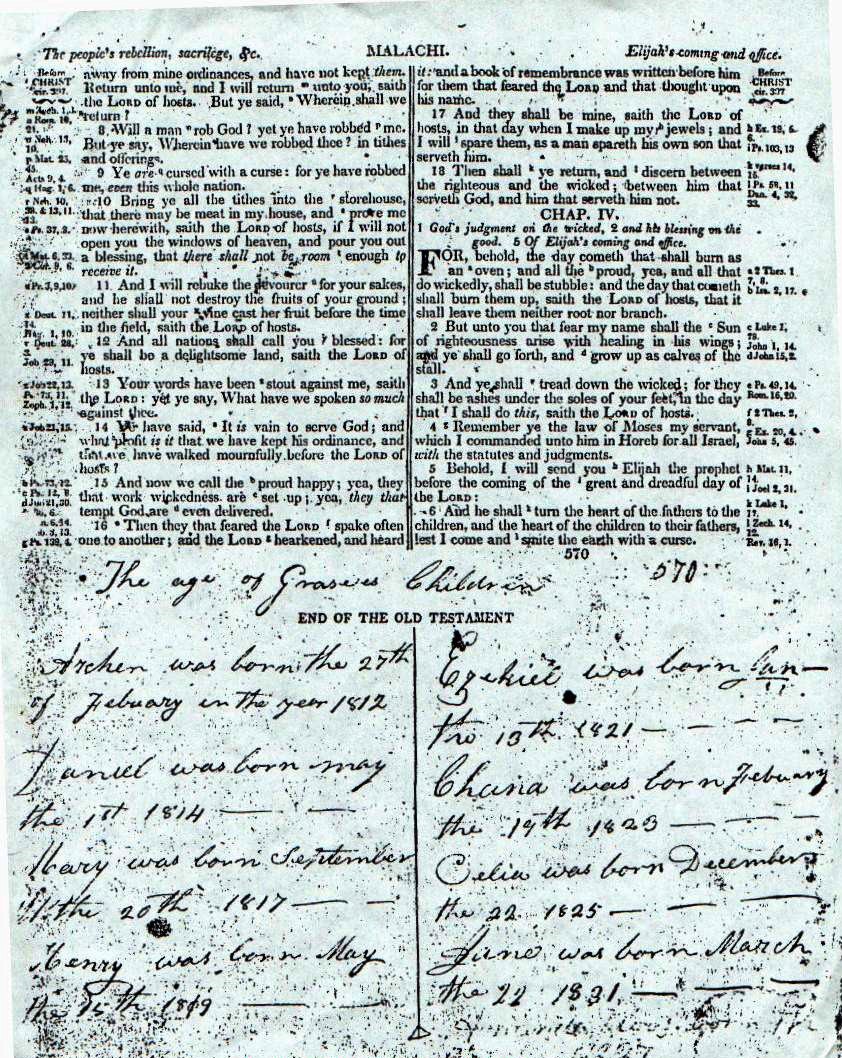 The people's rebellion, sacrilege, &c.
MALACHI.
Elijah's coming and office.
Before
CHRIST
cir. 397.
away from mine ordinances, and have not kept them.
Return unto me, and I will return unto you, saith
the LORD of hosts. But ye said, Wherein shall we
return?
8 Will a man rob God? yet ye have robbed me.
But ye say, Wherein have we robbed thee? in tithes
and offerings.
9 Ye are cursed with a curse: for ye have robbed
me, even this whole nation.
10 Bring ye all the tithes into the storehouse,
that there may be meat in my house, and prove me
now herewith, saith the LORD of hosts, if I will not
open you the windows of heaven, and pour you out
a blessing, that there shall not be room enough to
receive it.
11 And I will rebuke the devourer for your sakes,
and he shall not destroy the fruits of your ground;
neither shall your vine cast her fruit before the time
in the field, saith the LORD of hosts.
12 And all nations shall call you blessed: for
ye shall be a delightsome land, saith the LORD of
hosts.
13 Your words have been stout against me, saith
the LORD: yet ye say, What have we spoken so much
against thee.
14 Ye have said, It is vain to serve God; and
what profit is it that we have kept his ordinance, and
that we have walked mournfully before the LORD of
hosts?
15 And now we call the proud happy; yea, they
that work wickedness are set up; yea, they that
tempt God are even delivered.
16 Then they that feared the LORD spake often
one to another; and the LORD hearkened, and heard
it: and a book of remembrance was written before him
for them that feared the LORD and that thought upon
his name.
17 And they shall be mine, saith the LORD of
hosts, in that day when I make up my jewels; and
I will spare them, as a man spareth his own son that
serveth him.
18 Then shall ye return, and discern between
the righteous and the wicked; between him that
serveth God, and him that serveth him not.
CHAP. IV.
1 God's judgment on the wicked, 2 and his blessing on the
good. 5 Of Elijah's coming and office.
FOR, behold, the day cometh that shall burn as
an oven; and all the proud, yea, and all that
do wickedly, shall be stubble: and the day that cometh
shall burn them up, saith the LORD of hosts, that it
shall leave them neither root nor branch.
2 But unto you that fear my name shall the Sun
of righteousness arise with healing in his wings;
and ye shall go forth, and grow up as calves of the
stall.
3 And ye shall tread down the wicked; for they
shall be ashes under the soles of your feet, in the day
that I shall do this, saith the LORD of hosts.
4 Remember ye the law of Moses my servant,
which I commanded unto him in Horeb for all Israel,
with the statutes and judgments.
5 Behold, I will send you Elijah the prophet
before the coming of the great and dreadful day of
the LORD:
6 And he shall turn the heart of the fathers to the
children, and the heart of the children to their fathers,
lest I come and smite the earth with a curse.
Before
CHRIST
cir. 397
570
The age of Children 570
END OF THE OLD TESTAMENT
Archer was born the 27th
of Febuary in the year 1812
Daniel was born may
the 1st 1814
Mary was born September
the 20th 1817
Henry was born May
the 1819
Ezekiel was born Jan
the 13th 1821
Chana was born Febuary
the 19th 1823
Celia was born December
the 22 1825
Jane was born March
the 22 1831
was born the